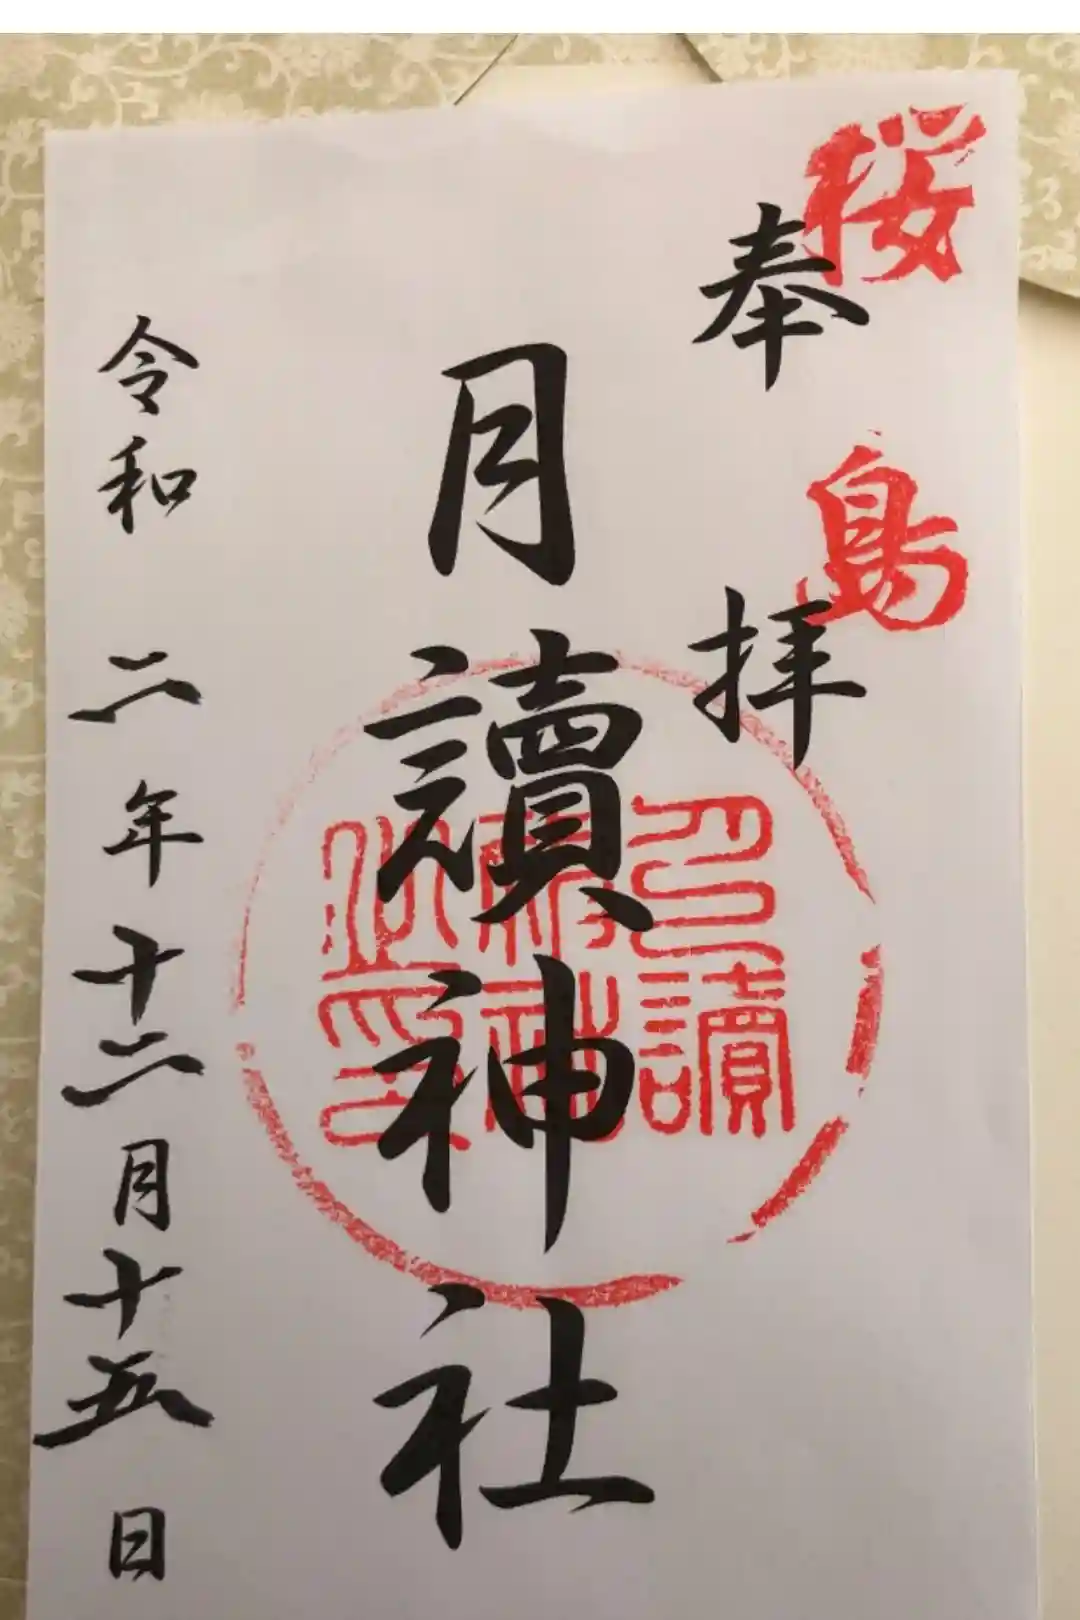 桜島
奉拝
月讀神社
月讀神社印
令和二年十二月十五日